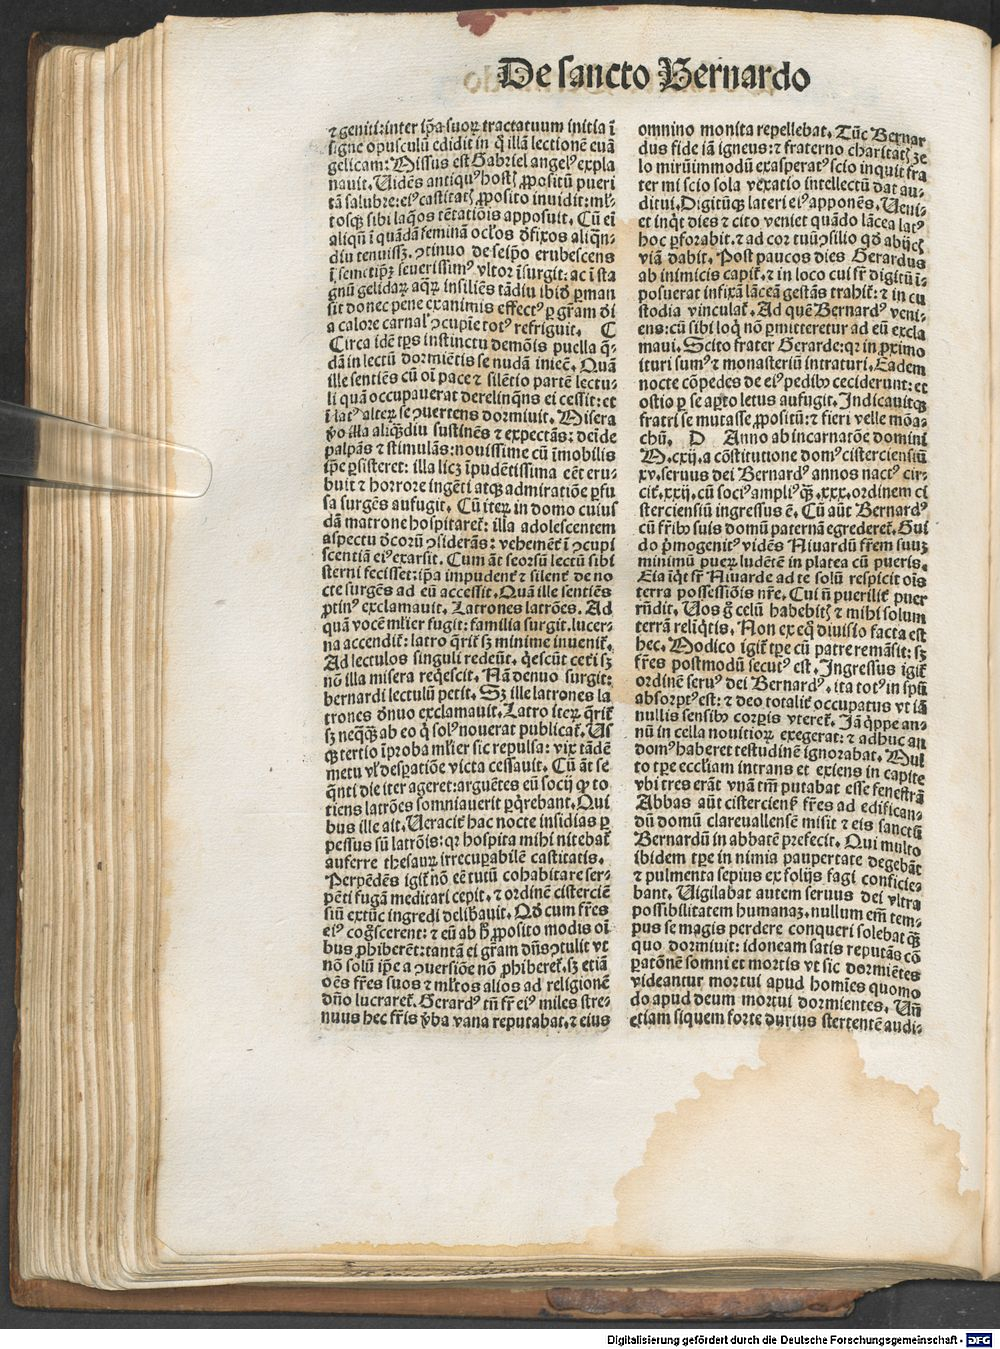 De sancto Bernardo
⁊ geniti: inter ip̄a suoꝝ tractatuum initia ī
signe opusculū edidit in q̇ illā lectionē euā
gelicam: Missus est Gabriel angelꝰ expla
nauit. Uidēs antiquꝰ hostꝭ ꝓpositū pueri
tā salubre: eiꝰ castitatꝭ ꝓposito inuidit: ml̄-
tosqꝫ sibi laq̇os tētatiōis apposuit. Cū eī
aliqn̄ ī quādā feminā oclos d̓fixos aliqn̄-
diu tenuissꝫ. ꝯtinuo de seip̄o erubescens
ī semetip̄ꝫ seuerissimꝰ vltor īsurgit: ac ī sta
gnū gelidaꝝ aqꝝ insiliēs tādiu ibid̓ ꝑman
sit donec pene exanimis effectꝰ ꝑ gr̄am d̓i
a calore carnalꝭ ꝯcupīe totꝰ refriguit. C
Circa idē tp̄s instinctu demōis puella q̄-
dā in lectū dormiētis se nudā iniec̄. Quā
ille sentiēs cū oī pace ⁊ silētio partē lectu-
li quā occupauerat derelinqns ei cessit: et
ī latꝰ alteꝝ se ꝯuertens dormiuit. Misera
ꝟo illa aliqꝫdiu sustinēs ⁊ expectās: deīde
palpās ⁊ stimulās: nouissime cū īmobilis
ip̄e ꝑsisteret: illa licꝫ īpudētissima eēt eru-
buit ⁊ horrore ingēti atqꝫ admiratiōe ꝑfu
sa surgēs aufugit. Cū iteꝝ in domo cuius
dā matrone hospitaret᷑: illa adolescentem
aspectu d̓corū ꝯsiderās: vehemēt᷑ ī ꝯcupi
scentiā eiꝰ exarsit. Cum āt seorsū lectū sibi
sterni fecisset: ip̄a impudent᷑ ⁊ silent᷑ de no
cte surgēs ad eū accessit. Quā ille sentiēs
ꝓtinꝰ exclamauit. Latrones latrōes. Ad
quā vocē ml̓ier fugit: familia surgit. lucer-
na accendit᷑: latro q̄rit᷑ sꝫ minime inuenit᷑.
Ad lectulos singuli redeūt. q̇escūt ceti sꝫ
nō illa misera req̇escit. Nā denuo surgit:
bernardi lectulū petit. Sꝫ ille latrones la
trones d̓nuo exclamauit. Latro iteꝝ q̄rit᷑
sꝫ neqꝙꝫ ab eo q̇ solꝰ nouerat publicat᷑. Us
qꝫ tertio īproba ml̓ier sic repulsa: vix tādē
metu vl̓ desꝑatiōe victa cessauit. Cū āt se
q̄nti die iter ageret: arguētes eū socij ꝙ to
tiens latrōes somniauerit ꝑq̇rebant. Qui
bus ille ait. Ueracit᷑ hac nocte insidias ꝑ
pessus sū latrōis: qꝛ hospita mihi nitebat᷑
auferre thesauꝝ irrecuꝑabilē castitatis.
Perpēdēs igit᷑ nō eē tutū cohabitare ser-
pēti fugā meditari cepit. ⁊ ordinē cisterciē
siū extūc ingredi delib̓auit. Qd̓ cum fr̄es
eiꝰ cog̓scerent: ⁊ eū ab h̓ ꝓposito modis oī
bus ꝓhiberēt: tantā ei gr̄am dn̄s ꝯtulit vt
nō solū ip̄e a ꝯuersiōe nō ꝓhiberet᷑. sꝫ etiā
oēs fr̄es suos ⁊ ml̓tos alios ad religionē
dn̄o lucraret᷑. Gerardꝰ tn̄ fr̄ eiꝰ miles stre-
nuus hec fr̄is ꝟba vana reputabat. ⁊ eius
omnino monita repellebat. Tūc Bernar
dus fide iā igneus: ⁊ fraterno charitatꝭ ze
lo mirūimmodū exasperatꝰ scio inquit fra
ter mi scio sola vexatio intellectū dat au-
ditui. Digitūqꝫ lateri eiꝰ apponēs. Ueni-
et inq̇t dies ⁊ cito veniet quādo lācea latꝰ
hoc ꝑforabit. ⁊ ad cor tuū ꝯsilio qd̓ abijcꝭ
viā dabit. Post paucos dies Gerardus
ab inimicis capit᷑. ⁊ in loco cui fr̄ digitū ī-
posuerat infixā lāceā gestās trahit᷑: ⁊ in cu
stodia vinculat᷑. Ad quē Bernardꝰ veni-
ens: cū sibi loq̇ nō ꝑmitteretur ad eū excla
mauit. Scito frater Gerarde: qꝛ in ꝓximo
ituri sumꝰ ⁊ monasteriū intraturi. Eadem
nocte cōpedes de eiꝰ pedibꝰ ceciderunt: et
ostio ꝑ se aꝑto letus aufugit. Indicauitqꝫ
fratri se mutasse ꝓpositū: ⁊ fieri velle mōa-
chū. D Anno ab incarnatōe domini
M.cxij. a cōstitutione domꝰ cisterciensiū
xv. seruus dei Bernardꝰ annos nactꝰ cir-
cit᷑. xxij. cū socijs ampliꝰ ꝙꝫ. xxx. ordinem ci
sterciensiū ingressus ē. Cū aūt Bernardꝰ
cū fr̄ibꝰ suis domū paternā egrederet᷑. Gui
do p̓mogenitꝰ vidēs Niuardū fr̄em suuꝫ
minimū pueꝝ ludētē in platea cū pueris.
Eia iq̇t fr̄ Niuarde ad te solū respicit oīs
terra possessiōis nr̄e. Cui n̄ puerilit᷑ puer
rn̄dit. Uos g̓ celū habebitꝭ ⁊ mihi solum
terrā reliq̇tis. Non ex eq̇ diuisio facta est
hec. Modico igit᷑ tp̄e cū patre remāsit: sꝫ
fr̄es postmodū secutꝰ est. Ingressus igit᷑
ordinē seruꝰ dei Bernardꝰ. ita totꝰ in spū
absorptꝰ est: ⁊ deo totalit᷑ occupatus vt iā
nullis sensibꝰ corꝑis vteret᷑. Jā q̇ppe an-
nū in cella nouitioꝝ exegerat: ⁊ adhuc an
domꝰ haberet testudinē ignorabat. Mul
to tp̄e eccl̄iam intrans et exiens in capite
vbi tres erāt vnā tm̄ putabat esse fenestrā
Abbas aūt cisterciens᷑ fr̄es ad edifican-
dū domū clareuallensē misit᷑ ⁊ eis sanctū
Bernardū in abbatē prefecit. Qui multo
ibidem tp̄e in nimia paupertate degebāt
⁊ pulmenta sepius ex folijs fagi conficie-
bant. Uigilabat autem seruus dei vltra
possibilitatem humanaꝫ. nullum em̄ tem-
pus se magis perdere conqueri solebat ꝙꝫ
quo dormiuit: idoneam satis reputās cō
ꝑatōnē somni et mortis vt sic dormiētes
videantur mortui apud homīes quomo
do apud deum mortui dormientes. Un̄
etiam siquem forte durius stertentē audi-
Digitalisierung gefördert durch die Deutsche Forschungsgemeinschaft - DFG